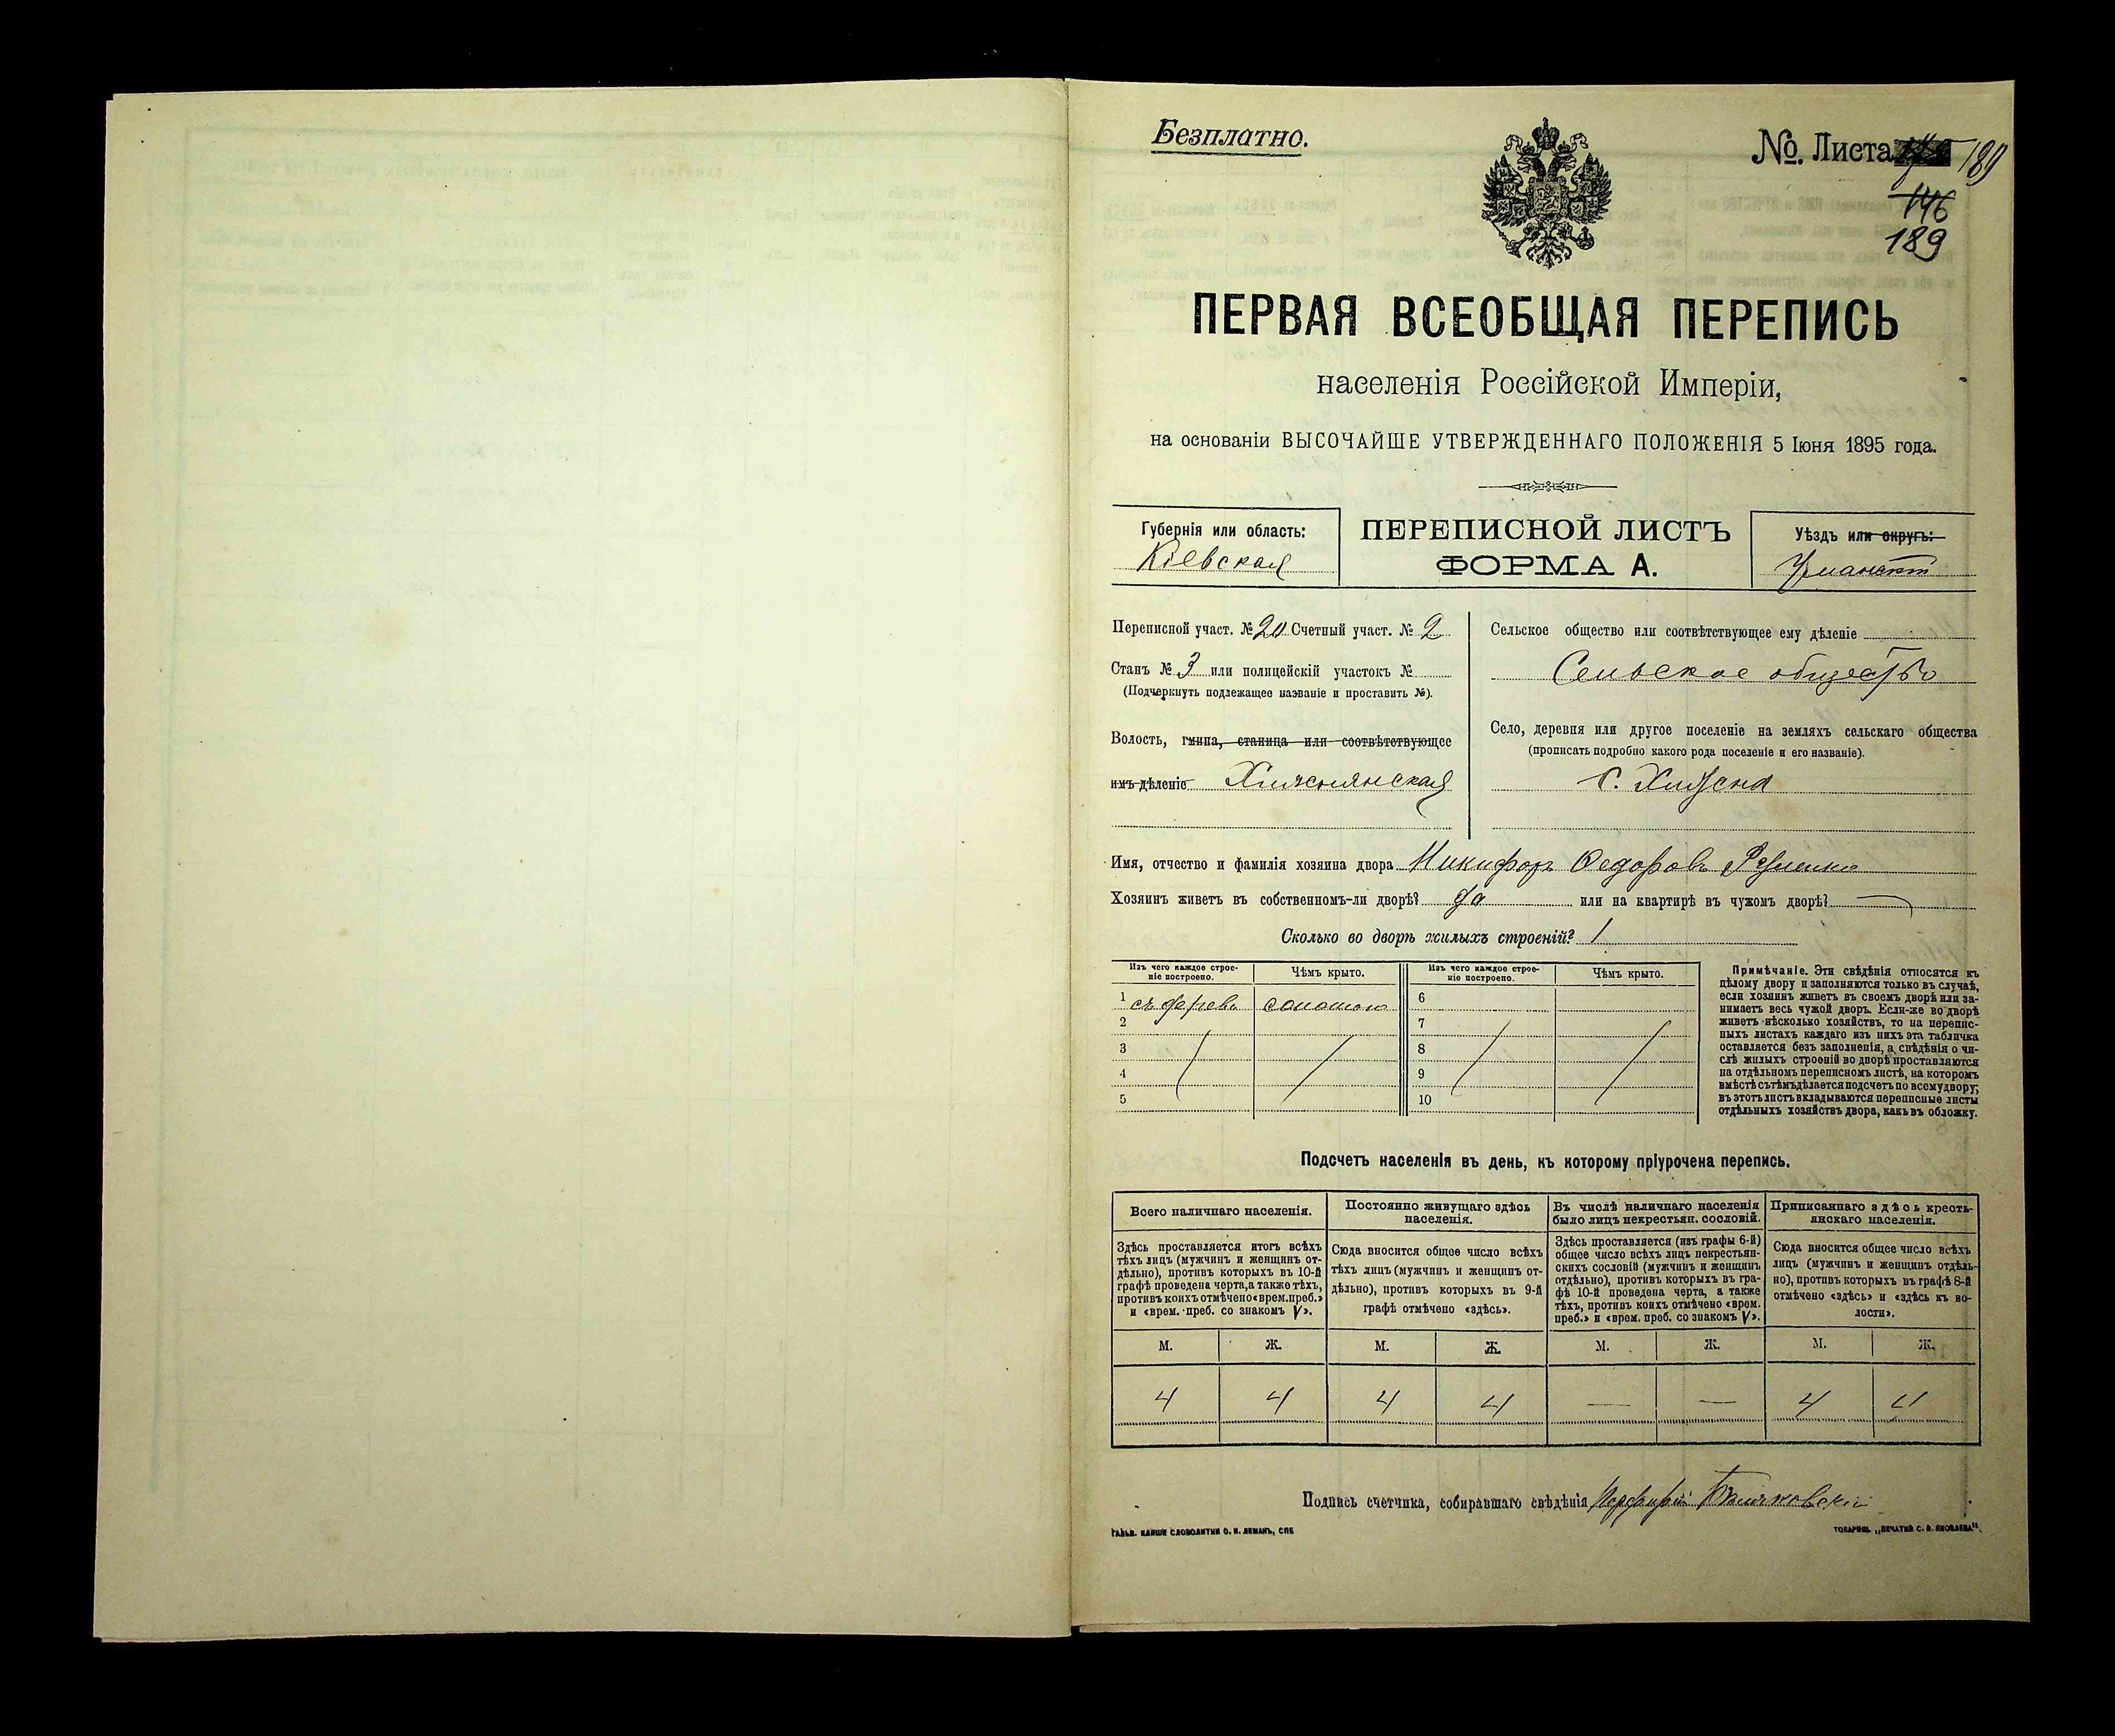 Безплатно.
№. Листа 189
146
189
ПЕРВАЯ ВСЕОБЩАЯ ПЕРЕПИСЬ
населенія Россійской Имперіи,
на основаніи ВЫСОЧАЙШЕ УТВЕРЖДЕННАГО ПОЛОЖЕНІЯ 5 Іюня 1895 года.
Губернія или область:
Кіевская
ПЕРЕПИСНОЙ ЛИСТЪ
ФОРМА А.
Уѣздъ или округъ:
Уманскій
Переписной участ. № 20 Счетный участ. № 2
Станъ № 3 или полицейскій участокъ №
(Подчеркнуть подлежащее названіе и проставить №).
Волость, гмина, станица или соотвѣтствующее
имъ дѣленіе Хижнянская
Сельское общество или соотвѣтствующее ему дѣленіе
Сельское общество
Село, деревня или другое поселеніе на земляхъ сельскаго общества
(прописать подробно какого рода поселеніе и его названіе).
с. Хижна
Имя, отчество и фамилія хозяина двора Никифоръ Федоровъ
Хозяинъ живетъ въ собственномъ-ли дворѣ? да или на квартирѣ въ чужомъ дворѣ? —
Сколько во дворѣ жилыхъ строеній? 1
Изъ чего каждое строе-
ніе построено.
Чѣмъ крыто.
Изъ чего каждое строе-
ніе построено.
Чѣмъ крыто.
1 съ дерева соломою 6
2 7
3 8
4 9
5 10
Примѣчаніе. Эти свѣдѣнія относятся къ
цѣлому двору и заполняются только въ случаѣ,
если хозяинъ живетъ въ своемъ дворѣ или за-
нимаетъ весь чужой дворъ. Если-же во дворѣ
живетъ нѣсколько хозяйствъ, то на перепис-
ныхъ листахъ каждаго изъ нихъ эта табличка
оставляется безъ заполненія, а свѣдѣнія о чи-
слѣ жилыхъ строеній во дворѣ проставляются
на отдѣльномъ переписномъ листѣ, на которомъ
вмѣстѣ съ тѣмъ дѣлается подсчетъ по всему двору;
въ этотъ листъ вкладываются переписные листы
отдѣльныхъ хозяйствъ двора, какъ въ обложку.
Подсчетъ населенія въ день, къ которому пріурочена перепись.
Всего наличнаго населенія.
Здѣсь проставляется итогъ всѣхъ
тѣхъ лицъ (мужчинъ и женщинъ от-
дѣльно), противъ которыхъ въ 10-й
графѣ проведена черта, а также тѣхъ,
противъ коихъ отмѣчено «врем. преб.»
и «врем. преб. со знакомъ V».
Постоянно живущаго здѣсь
населенія.
Сюда вносится общее число всѣхъ
тѣхъ лицъ (мужчинъ и женщинъ от-
дѣльно), противъ которыхъ въ 9-й
графѣ отмѣчено «здѣсь».
Въ числѣ наличнаго населенія
было лицъ некрестьян. сословій.
Здѣсь проставляется (изъ графы 6-й)
общее число всѣхъ лицъ некрестьян-
скихъ сословій (мужчинъ и женщинъ
отдѣльно), противъ которыхъ въ гра-
фѣ 10-й проведена черта, а также
тѣхъ, противъ коихъ отмѣчено «врем.
преб.» и «врем. преб. со знакомъ V».
Приписаннаго здѣсь кресть-
янскаго населенія.
Сюда вносится общее число всѣхъ
лицъ (мужчинъ и женщинъ отдѣль-
но), противъ которыхъ въ графѣ 8-й
отмѣчено «здѣсь» и «здѣсь къ во-
лости».
М. Ж. М. Ж. М. Ж. М. Ж.
4 4 4 4 — — 4 4
Подпись счетчика, собиравшаго свѣдѣнія
ГАЛЬВ. КЛИШЕ СЛОВОЛИТНИ О. И. ЛЕМАНЪ, СПБ
ТОВАРИЩ. „ПЕЧАТНЯ С. П. ЯКОВЛЕВА".